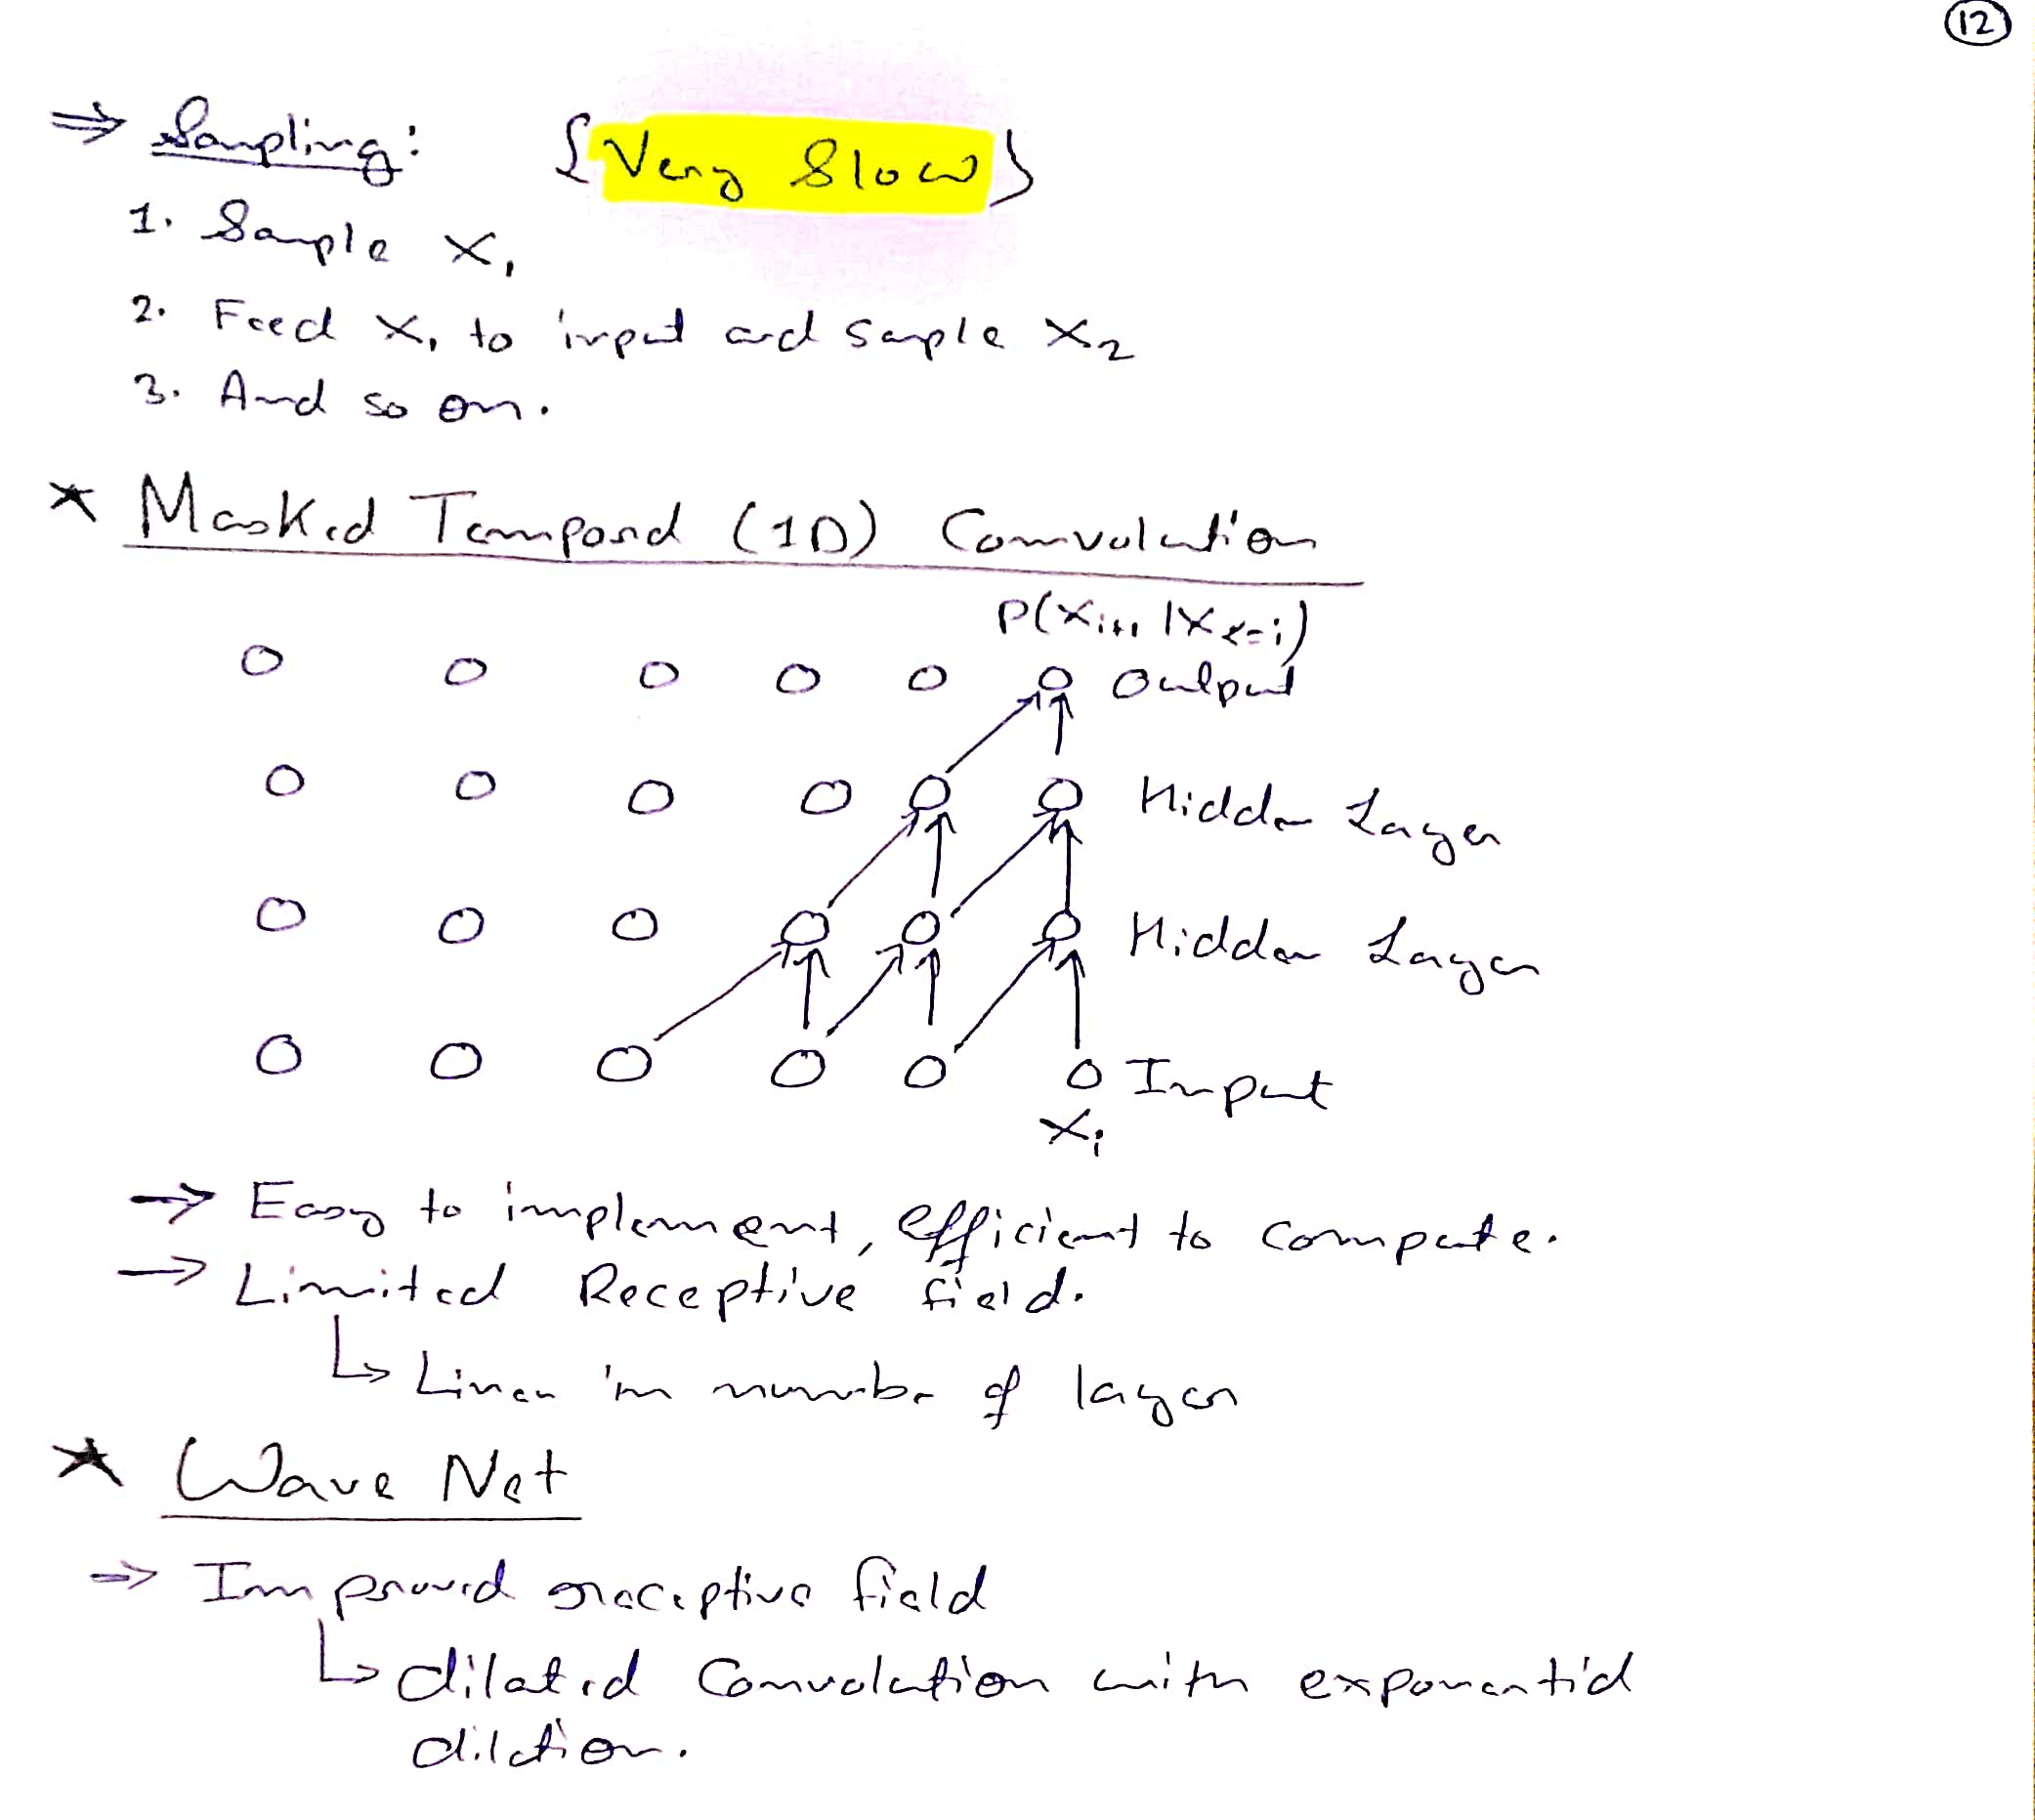 12
⇒ Sampling: {Very Slow}
1. Sample X₁
2. Feed X₁ to input and sample X₂
3. And so on.
* Masked Temporal (1D) Convolution
P(Xᵢ₊₁ | X<=i)
Output
Hidden Layer
Hidden Layer
Input
Xᵢ
→ Easy to implement, efficient to compute.
→ Limited Receptive field.
↳ Linear in number of layer
* Wave Net
⇒ Improved receptive field
↳ dilated Convolution with exponential
dilation.